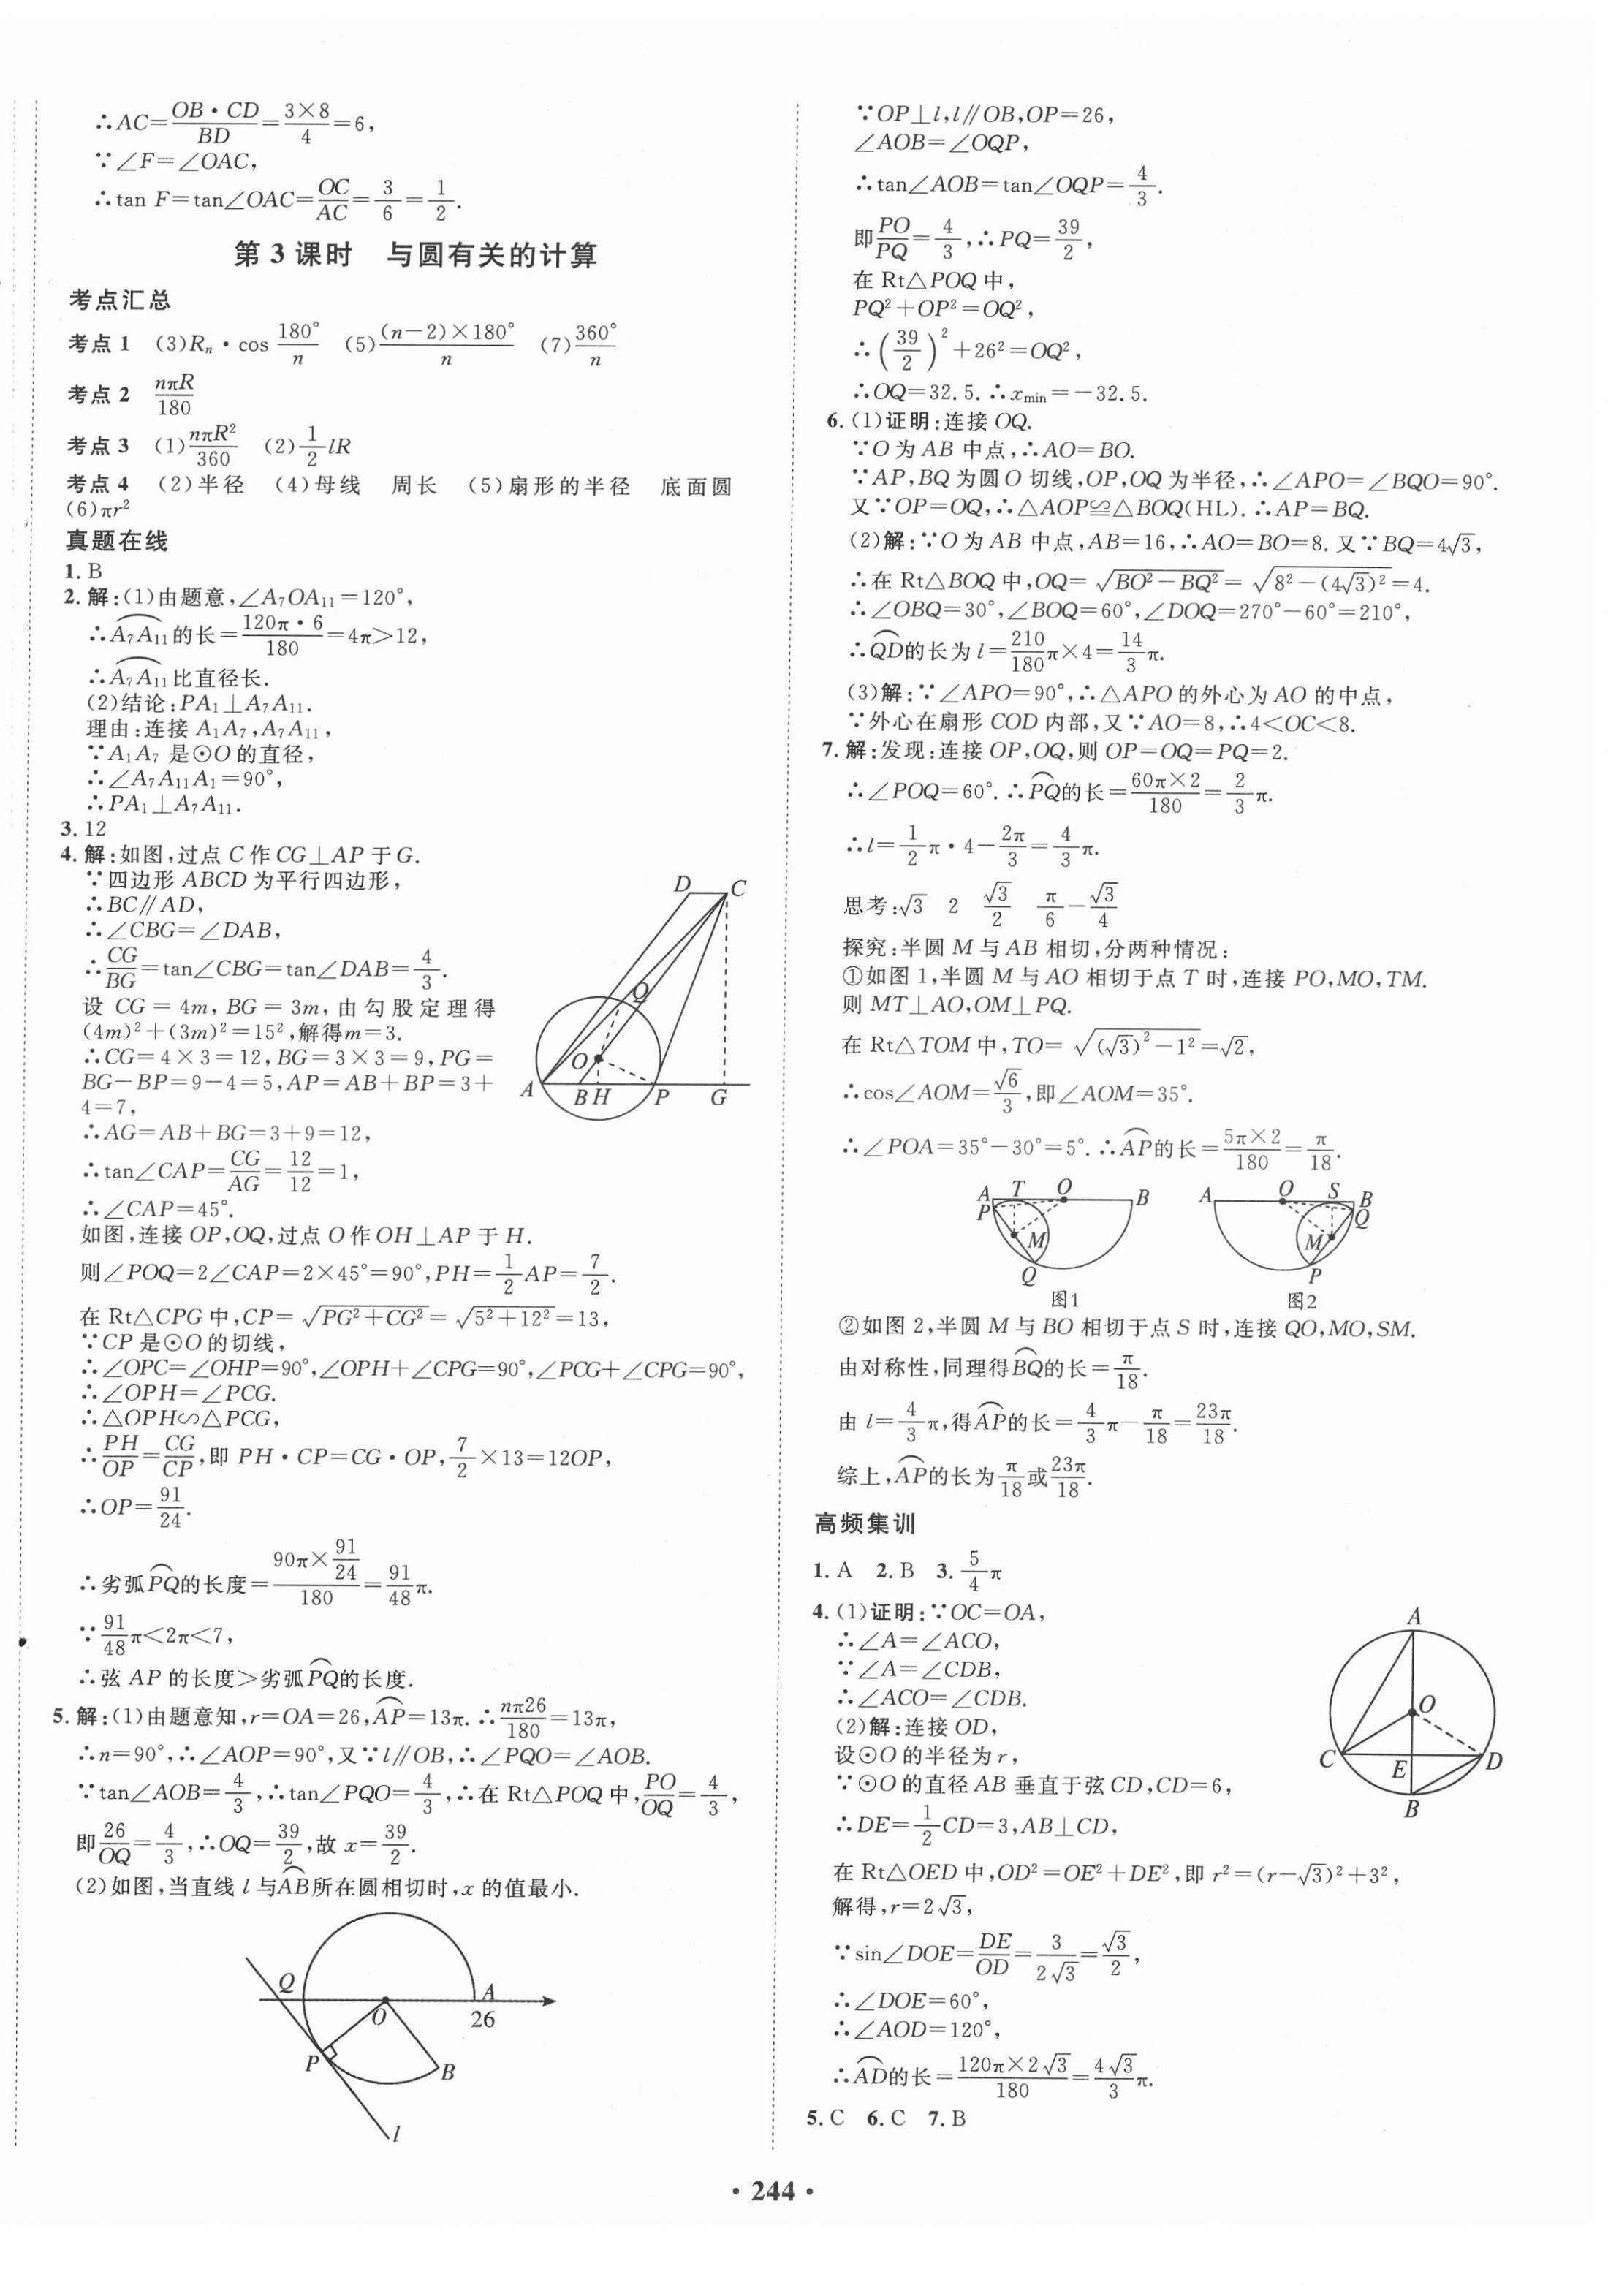 ∴AC=OB·CD/BD=3×8/4=6,
∵∠F=∠OAC,
∴tan F=tan∠OAC=OC/AC=3/6=1/2.
第 3 课时　与圆有关的计算
考点汇总
考点 1　(3)Rₙ·cos 180°/n　(5)(n−2)×180°/n　(7)360°/n
考点 2　nπR/180
考点 3　(1)nπR²/360　(2)1/2 lR
考点 4　(2)半径　(4)母线　周长　(5)扇形的半径　底面圆
(6)πr²
真题在线
1. B
2. 解:(1)由题意,∠A₇OA₁₁=120°,
∴A₇A₁₁⌒的长=120π·6/180=4π>12,
∴A₇A₁₁⌒比直径长.
(2)结论:PA₁⊥A₇A₁₁.
理由:连接 A₁A₇,A₇A₁₁,
∵A₁A₇ 是⊙O 的直径,
∴∠A₇A₁₁A₁=90°,
∴PA₁⊥A₇A₁₁.
3. 12
4. 解:如图,过点 C 作 CG⊥AP 于 G.
∵四边形 ABCD 为平行四边形,
∴BC∥AD,
∴∠CBG=∠DAB,
∴CG/BG=tan∠CBG=tan∠DAB=4/3.
设 CG=4m, BG=3m, 由勾股定理得
(4m)²+(3m)²=15²,解得m=3.
∴CG=4×3=12,BG=3×3=9,PG=
BG−BP=9−4=5,AP=AB+BP=3+
4=7,
∴AG=AB+BG=3+9=12,
∴tan∠CAP=CG/AG=12/12=1,
∴∠CAP=45°.
D C Q O A B H P G
如图,连接 OP,OQ,过点 O 作 OH⊥AP 于 H.
则∠POQ=2∠CAP=2×45°=90°,PH=1/2 AP=7/2.
在 Rt△CPG 中,CP=√(PG²+CG²)=√(5²+12²)=13,
∵CP 是⊙O 的切线,
∴∠OPC=∠OHP=90°,∠OPH+∠CPG=90°,∠PCG+∠CPG=90°,
∴∠OPH=∠PCG.
∴△OPH∽△PCG,
∴PH/OP=CG/CP,即 PH·CP=CG·OP,7/2×13=12OP,
∴OP=91/24.
∴劣弧PQ⌒的长度=(90π×91/24)/180=91/48 π.
∵91/48 π<2π<7,
∴弦 AP 的长度>劣弧PQ⌒的长度.
5. 解:(1)由题意知,r=OA=26,AP⌒=13π.∴nπ26/180=13π,
∴n=90°,∴∠AOP=90°,又∵l∥OB,∴∠PQO=∠AOB.
∵tan∠AOB=4/3,∴tan∠PQO=4/3,∴在 Rt△POQ 中,PO/OQ=4/3,
即26/OQ=4/3,∴OQ=39/2,故 x=39/2.
(2)如图,当直线 l 与AB⌒所在圆相切时,x 的值最小.
Q O A 26 P B l
∵OP⊥l,l∥OB,OP=26,
∠AOB=∠OQP,
∴tan∠AOB=tan∠OQP=4/3.
即PO/PQ=4/3,∴PQ=39/2,
在 Rt△POQ 中,
PQ²+OP²=OQ²,
∴(39/2)²+26²=OQ²,
∴OQ=32.5.∴x_min=−32.5.
6. (1)证明:连接 OQ.
∵O 为 AB 中点,∴AO=BO.
∵AP,BQ 为圆 O 切线,OP,OQ 为半径,∴∠APO=∠BQO=90°.
又∵OP=OQ,∴△AOP≌△BOQ(HL).∴AP=BQ.
(2)解:∵O 为 AB 中点,AB=16,∴AO=BO=8.又∵BQ=4√3,
∴在 Rt△BOQ 中,OQ=√(BO²−BQ²)=√(8²−(4√3)²)=4.
∴∠OBQ=30°,∠BOQ=60°,∠DOQ=270°−60°=210°,
∴QD⌒的长为 l=210/180 π×4=14/3 π.
(3)解:∵∠APO=90°,∴△APO 的外心为 AO 的中点,
∵外心在扇形 COD 内部,又∵AO=8,∴4<OC<8.
7. 解:发现:连接 OP,OQ,则 OP=OQ=PQ=2.
∴∠POQ=60°.∴PQ⌒的长=60π×2/180=2/3 π.
∴l=1/2 π·4−2π/3=4/3 π.
思考:√3　2　√3/2　π/6−√3/4
探究:半圆 M 与 AB 相切,分两种情况:
①如图 1,半圆 M 与 AO 相切于点 T 时,连接 PO,MO,TM.
则 MT⊥AO,OM⊥PQ.
在 Rt△TOM 中,TO=√((√3)²−1²)=√2,
∴cos∠AOM=√6/3,即∠AOM=35°.
∴∠POA=35°−30°=5°.∴AP⌒的长=5π×2/180=π/18.
A T O B P M Q
A O S B Q M P
图1　图2
②如图 2,半圆 M 与 BO 相切于点 S 时,连接 QO,MO,SM.
由对称性,同理得BQ⌒的长=π/18.
由 l=4/3 π,得AP⌒的长=4/3 π−π/18=23π/18.
综上,AP⌒的长为π/18或23π/18.
高频集训
1. A　2. B　3. 5/4 π
4. (1)证明:∵OC=OA,
∴∠A=∠ACO,
∵∠A=∠CDB,
∴∠ACO=∠CDB.
(2)解:连接 OD,
设⊙O 的半径为 r,
∵⊙O 的直径 AB 垂直于弦 CD,CD=6,
∴DE=1/2 CD=3,AB⊥CD,
A O C E D B
在 Rt△OED 中,OD²=OE²+DE²,即 r²=(r−√3)²+3²,
解得,r=2√3,
∵sin∠DOE=DE/OD=3/2√3=√3/2,
∴∠DOE=60°,
∴∠AOD=120°,
∴AD⌒的长=120π×2√3/180=4√3/3 π.
5. C　6. C　7. B
· 244 ·